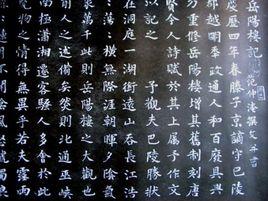 岳陽樓記 范仲淹撰文
慶歷四年春滕子京謫守巴陵
郡越明年政通人和百廢具興
乃重修岳陽樓增其舊制刻唐
賢今人詩賦於其上屬予作文
以記之 予觀夫巴陵勝狀
在洞庭一湖銜遠山吞長江浩
〻蕩〻橫無際涯朝暉夕陰氣
象萬千此則岳陽樓之大觀也
前人之述備矣然則北通巫峽
南極瀟湘遷客騷人多會於此
覽物之情得無異乎若夫霪雨